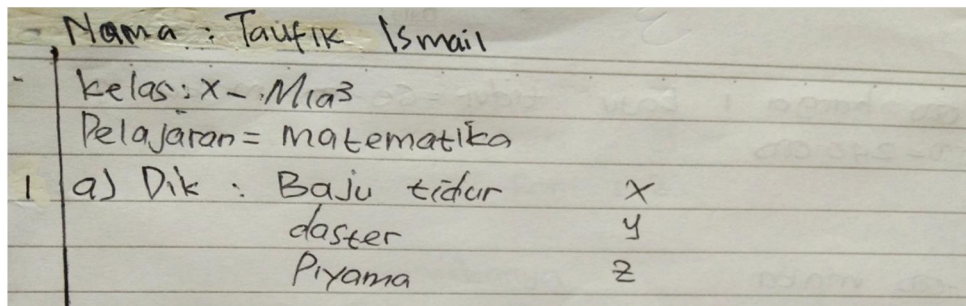 Nama : Taufik Ismail
kelas : X - Mia3
Pelajaran = matematika
1 a) Dik : Baju tidur x
daster y
Piyama z